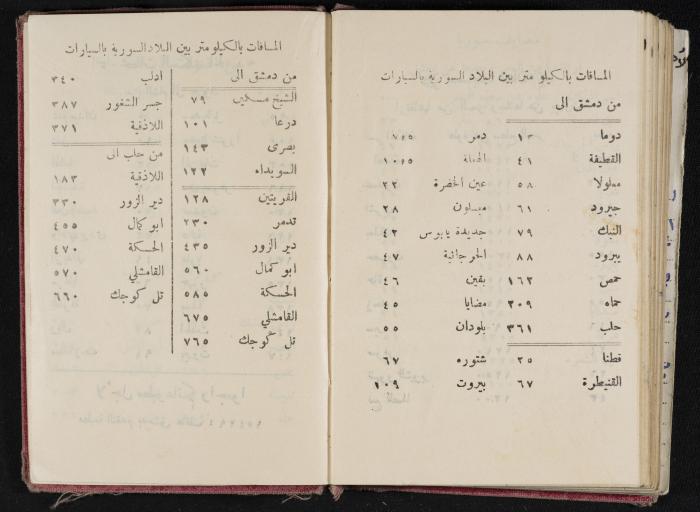 المسافات بالكيلو متر بين البلاد السورية بالسيارات
من دمشق الى
دوما ١٣
القطيفة ٤١
معلولا ٥٨
جيرود ٦١
النبك ٧٩
يبرود ٨٨
حمص ١٦٢
حماه ٢٠٩
حلب ٣٦١
قطنا ٢٥
القنيطرة ٦٧
دمر ٧٫٥
الهامة ١٠٫٥
عين الخضرة ٢٢
ميسلون ٢٨
جديدة يابوس ٤٢
الجرجانية ٤٧
بقين ٤٦
مضايا ٤٥
بلودان ٥٥
شتوره ٦٧
بيروت ١٠٩
المسافات بالكيلو متر بين البلاد السورية بالسيارات
من دمشق الى
الشيخ مسكين ٧٩
درعا ١٠١
بصرى ١٤٣
السويداء ١٢٢
القريتين ١٢٨
تدمر ٢٣٠
دير الزور ٤٣٥
ابو كمال ٥٦٠
الحسكة ٥٨٥
القامشلي ٦٧٥
تل كوجك ٧٦٥
ادلب ٣٤٠
جسر الشغور ٣٨٧
اللاذقية ٣٧١
من حلب الى
اللاذقية ١٨٣
دير الزور ٣٣٠
ابو كمال ٤٥٥
الحسكة ٤٧٠
القامشلي ٥٧٠
تل كوجك ٦٦٠